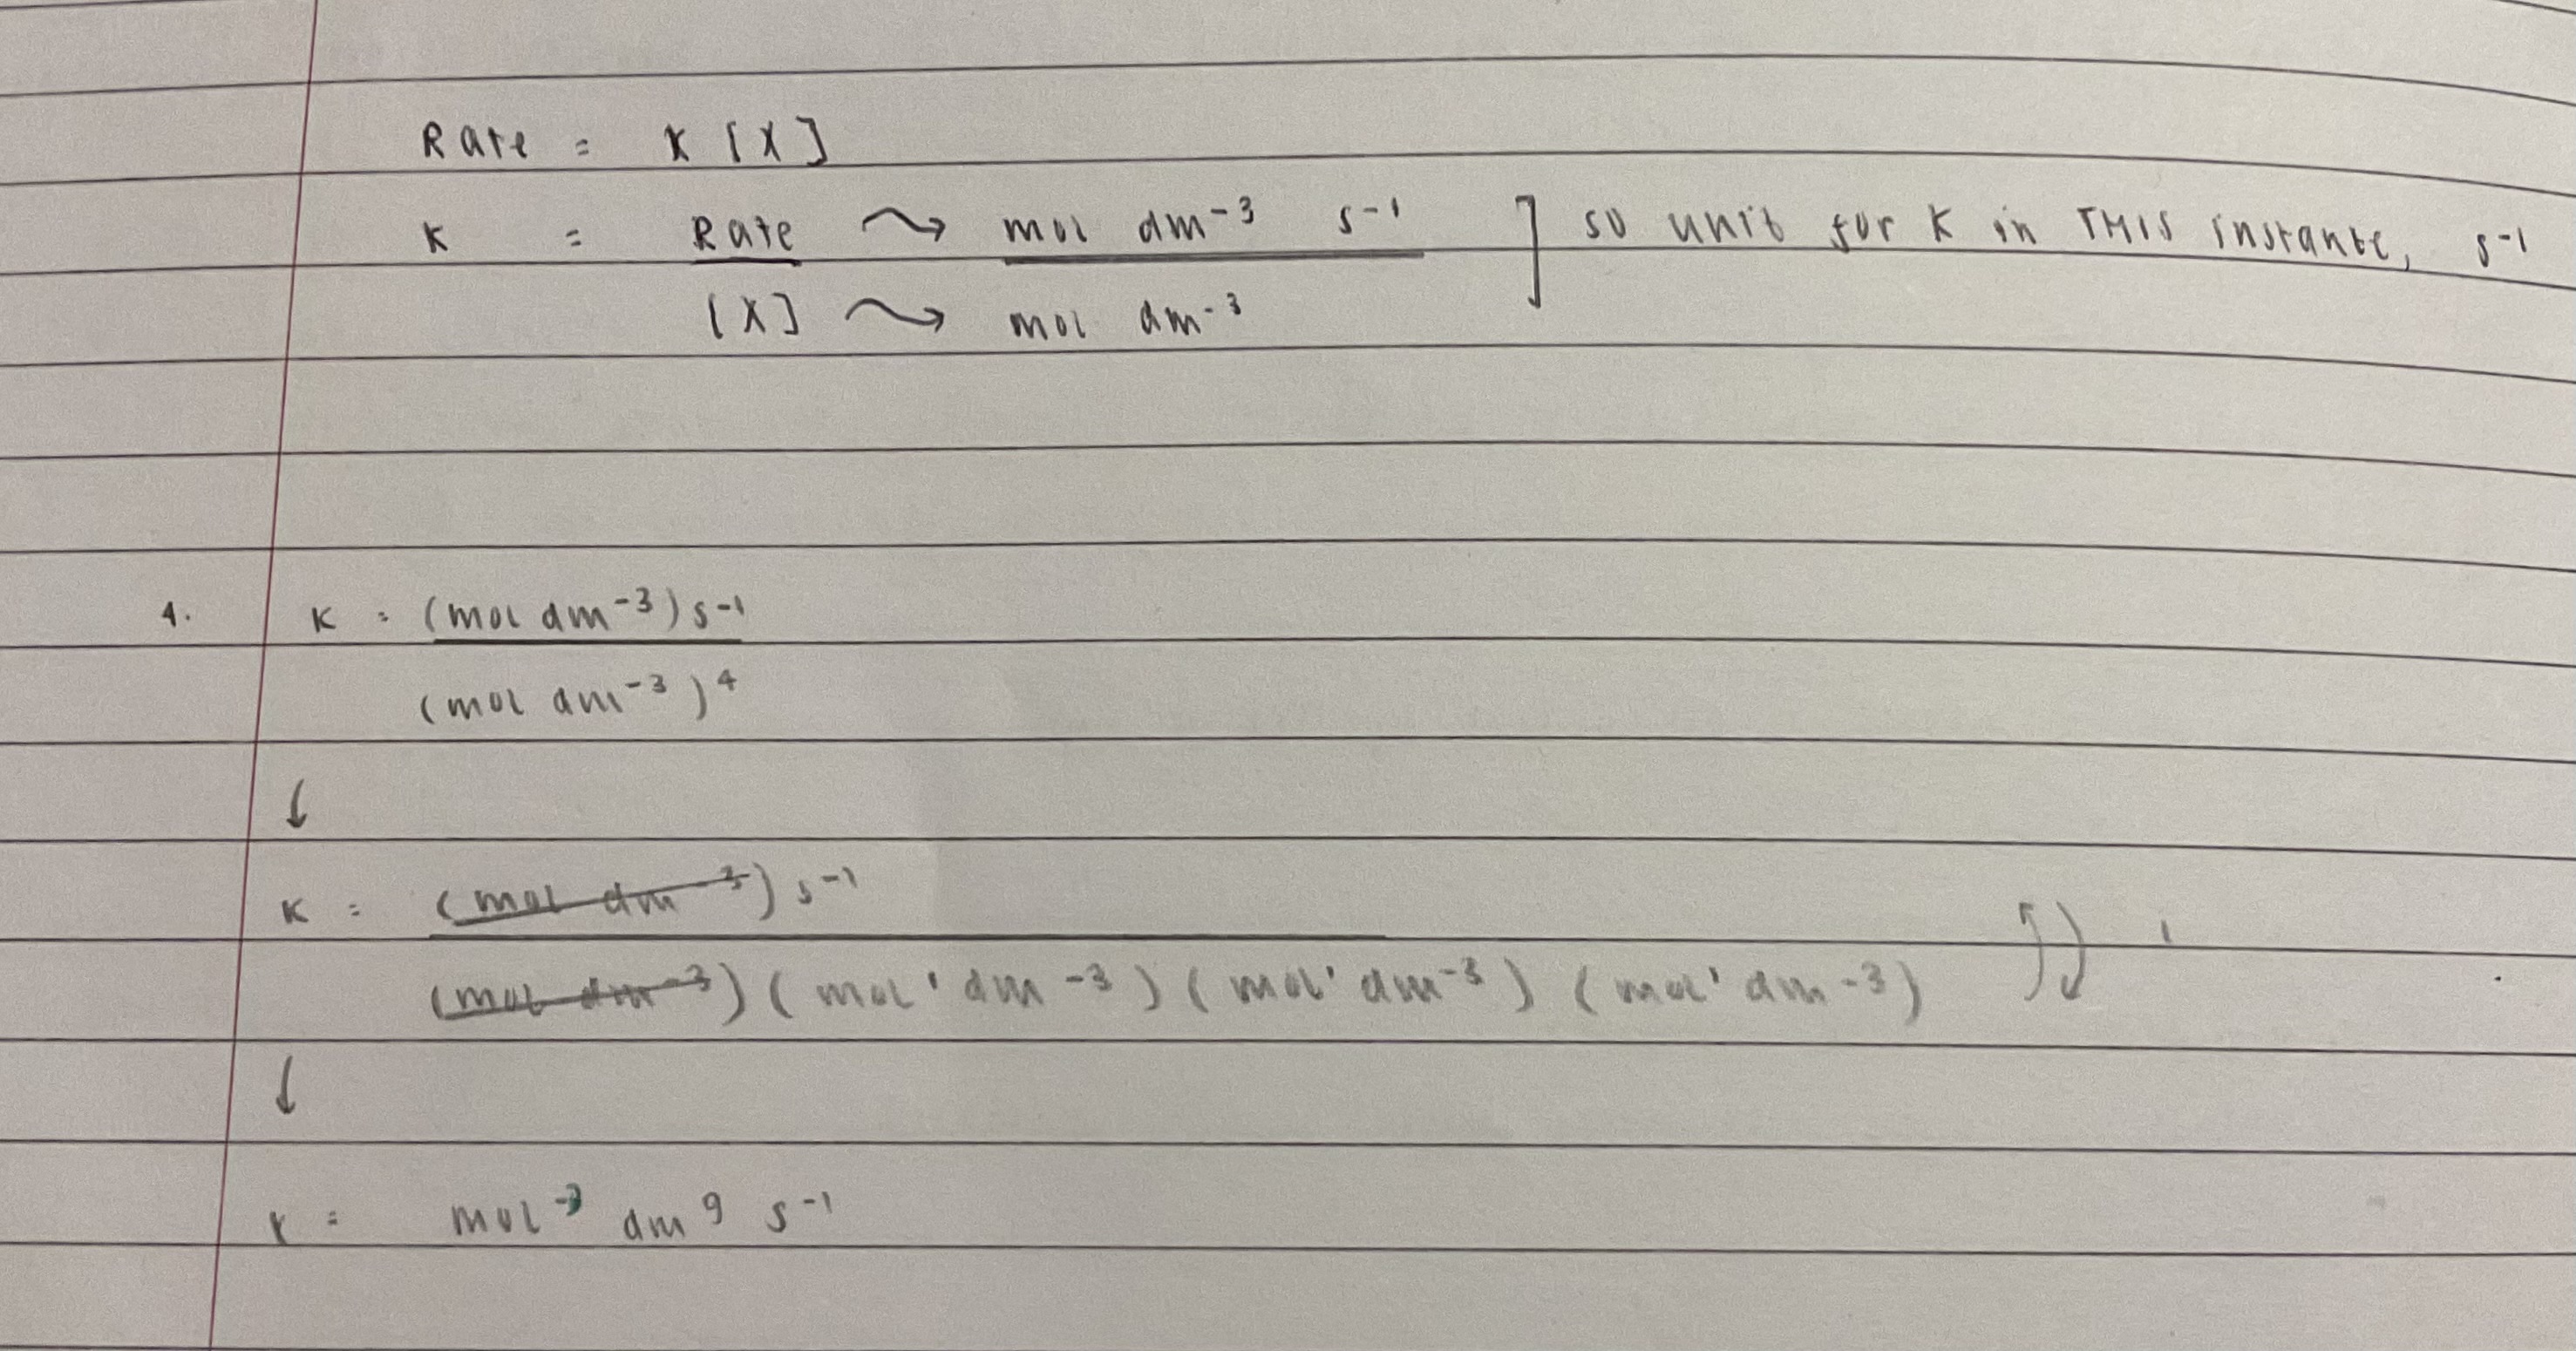 Rate = K [X]
K = Rate ⇝ mol dm⁻³ s⁻¹ ] so unit for K in THIS instance, s⁻¹
[X] ⇝ mol dm⁻³
4. K = (mol dm⁻³) s⁻¹
(mol dm⁻³)⁴
↓
K = (mol dm⁻³) s⁻¹
(mol dm⁻³) (mol¹ dm⁻³) (mol¹ dm⁻³) (mol¹ dm⁻³)
↓
K = mol⁻³ dm⁹ s⁻¹